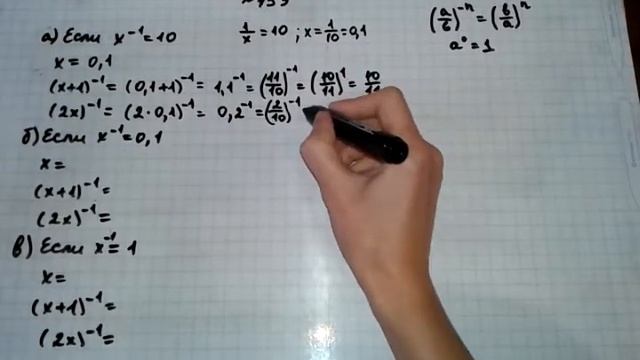 а) Если x⁻¹ = 10   1/x = 10 ; x = 1/10 = 0,1
(a/б)⁻ⁿ = (б/a)ⁿ
a⁰ = 1
x = 0,1
(x+1)⁻¹ = (0,1+1)⁻¹ = 1,1⁻¹ = (11/10)⁻¹ = (10/11)¹ = 10/11
(2x)⁻¹ = (2·0,1)⁻¹ = 0,2⁻¹ = (2/10)⁻¹
б) Если x⁻¹ = 0,1
x =
(x+1)⁻¹ =
(2x)⁻¹ =
в) Если x⁻¹ = 1
x =
(x+1)⁻¹ =
(2x)⁻¹ =